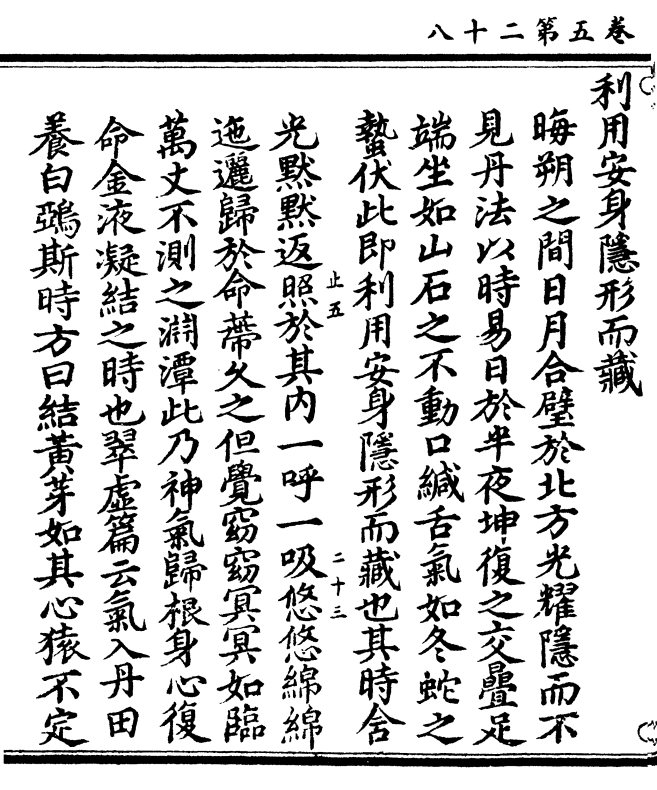 卷五第二十八
利用安身隱形而藏
晦朔之間日月合璧於北方光耀隱而不
見丹法以時易日於半夜坤復之交疊足
端坐如山石之不動口緘舌氣如冬蛇之
蟄伏此即利用安身隱形而藏也其時含
光默默返照於其內一呼一吸悠悠綿綿
迤邐歸於命蔕久之但覺窈窈冥冥如臨
萬丈不測之淵潭此乃神氣歸根身心復
命金液凝結之時也翠虛篇云氣入丹田
養白鵶斯時方曰結黃芽如其心猿不定
止五
二十三